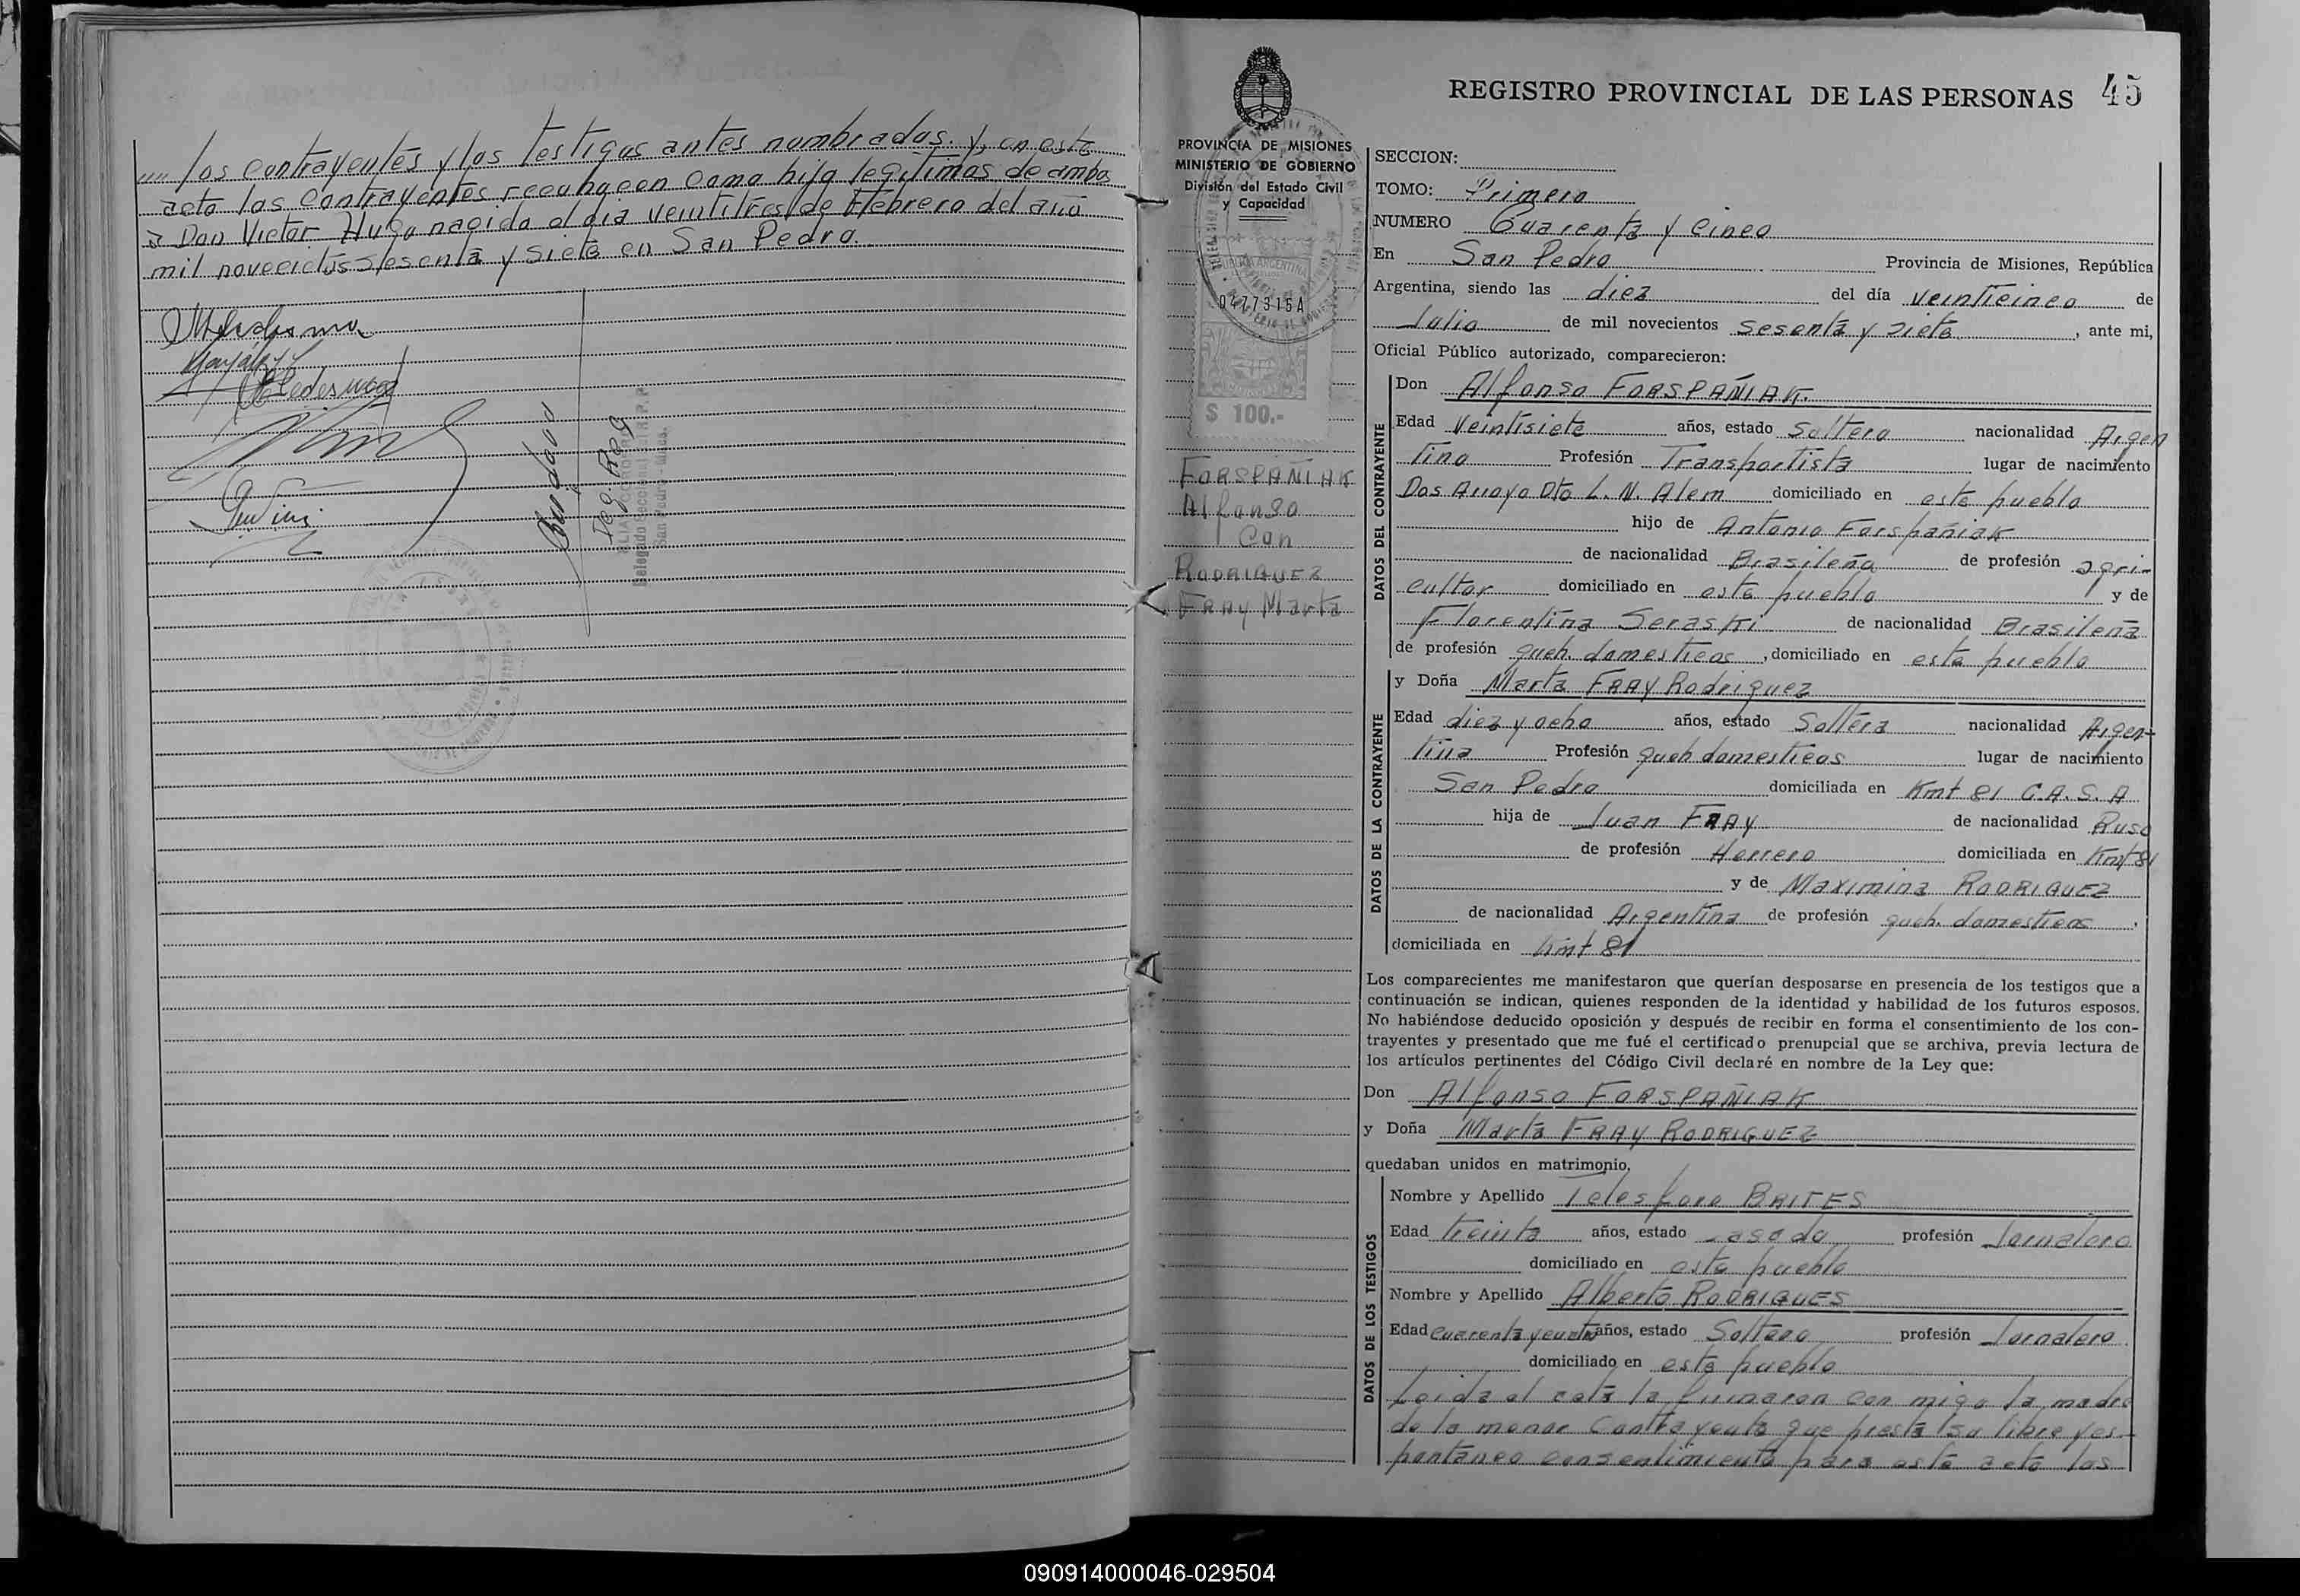 "" los contrayentes y los testigos antes nombrados. y, en este
acto los contrayentes reconocen como hijo legitimos de ambos
a Don Victor Hugo nacido el dia veintitres de Febrero del año
mil novecictos sesenta y siete en San Pedro.
Ledesma
REGISTRO PROVINCIAL DE LAS PERSONAS 45
PROVINCIA DE MISIONES
MINISTERIO DE GOBIERNO
División del Estado Civil
y Capacidad
0477315A
$ 100.-
FORSPAÑIAK
Alfonso
Con
RODRIGUEZ
FRAY Marta
SECCION:
TOMO: Primero
NUMERO Cuarenta y Cinco
En San Pedro Provincia de Misiones, República
Argentina, siendo las diez del día veinticinco de
Julio de mil novecientos sesenta y siete, ante mi,
Oficial Público autorizado, comparecieron:
DATOS DEL CONTRAYENTE
Don Alfonso FORSPAÑIAK.
Edad veintisiete años, estado soltero nacionalidad Argen
tino Profesión Transportista lugar de nacimiento
Dos Arroyo Dto L. N. Alem domiciliado en este pueblo
hijo de Antonio Forspañiak
de nacionalidad Brasileña de profesión agri-
cultor domiciliado en este pueblo y de
Florentina Seraski de nacionalidad Brasileña
de profesión queh. domesticos, domiciliado en este pueblo
DATOS DE LA CONTRAYENTE
y Doña Marta FRAY Rodriguez
Edad diez y ocho años, estado Soltera nacionalidad Argen-
tina Profesión queh domesticos lugar de nacimiento
San Pedro domiciliada en Kmt 81 C.A.S.A
hija de Juan FRAY de nacionalidad Ruso
de profesión Herrero domiciliada en Kmt 81
y de Maximina RODRIGUEZ
de nacionalidad Argentina de profesión queh. domesticos.
domiciliada en Kmt 81
Los comparecientes me manifestaron que querían desposarse en presencia de los testigos que a
continuación se indican, quienes responden de la identidad y habilidad de los futuros esposos.
No habiéndose deducido oposición y después de recibir en forma el consentimiento de los con-
trayentes y presentado que me fué el certificado prenupcial que se archiva, previa lectura de
los artículos pertinentes del Código Civil declaré en nombre de la Ley que:
Don Alfonso FORSPAÑIAK
y Doña Marta FRAY RODRIGUEZ
quedaban unidos en matrimonio.
DATOS DE LOS TESTIGOS
Nombre y Apellido Telesforo BRITES
Edad treinta años, estado casado profesión Jornalero
domiciliado en este pueblo
Nombre y Apellido Alberto RODRIGUES
Edad cuarenta y cuatro años, estado Soltero profesión Jornalero.
domiciliado en este pueblo
Leida el acta la firmaron con migo la madre
de la menor Contrayente que presta su libre y es-
pontaneo consentimiento para este acto los
090914000046-029504